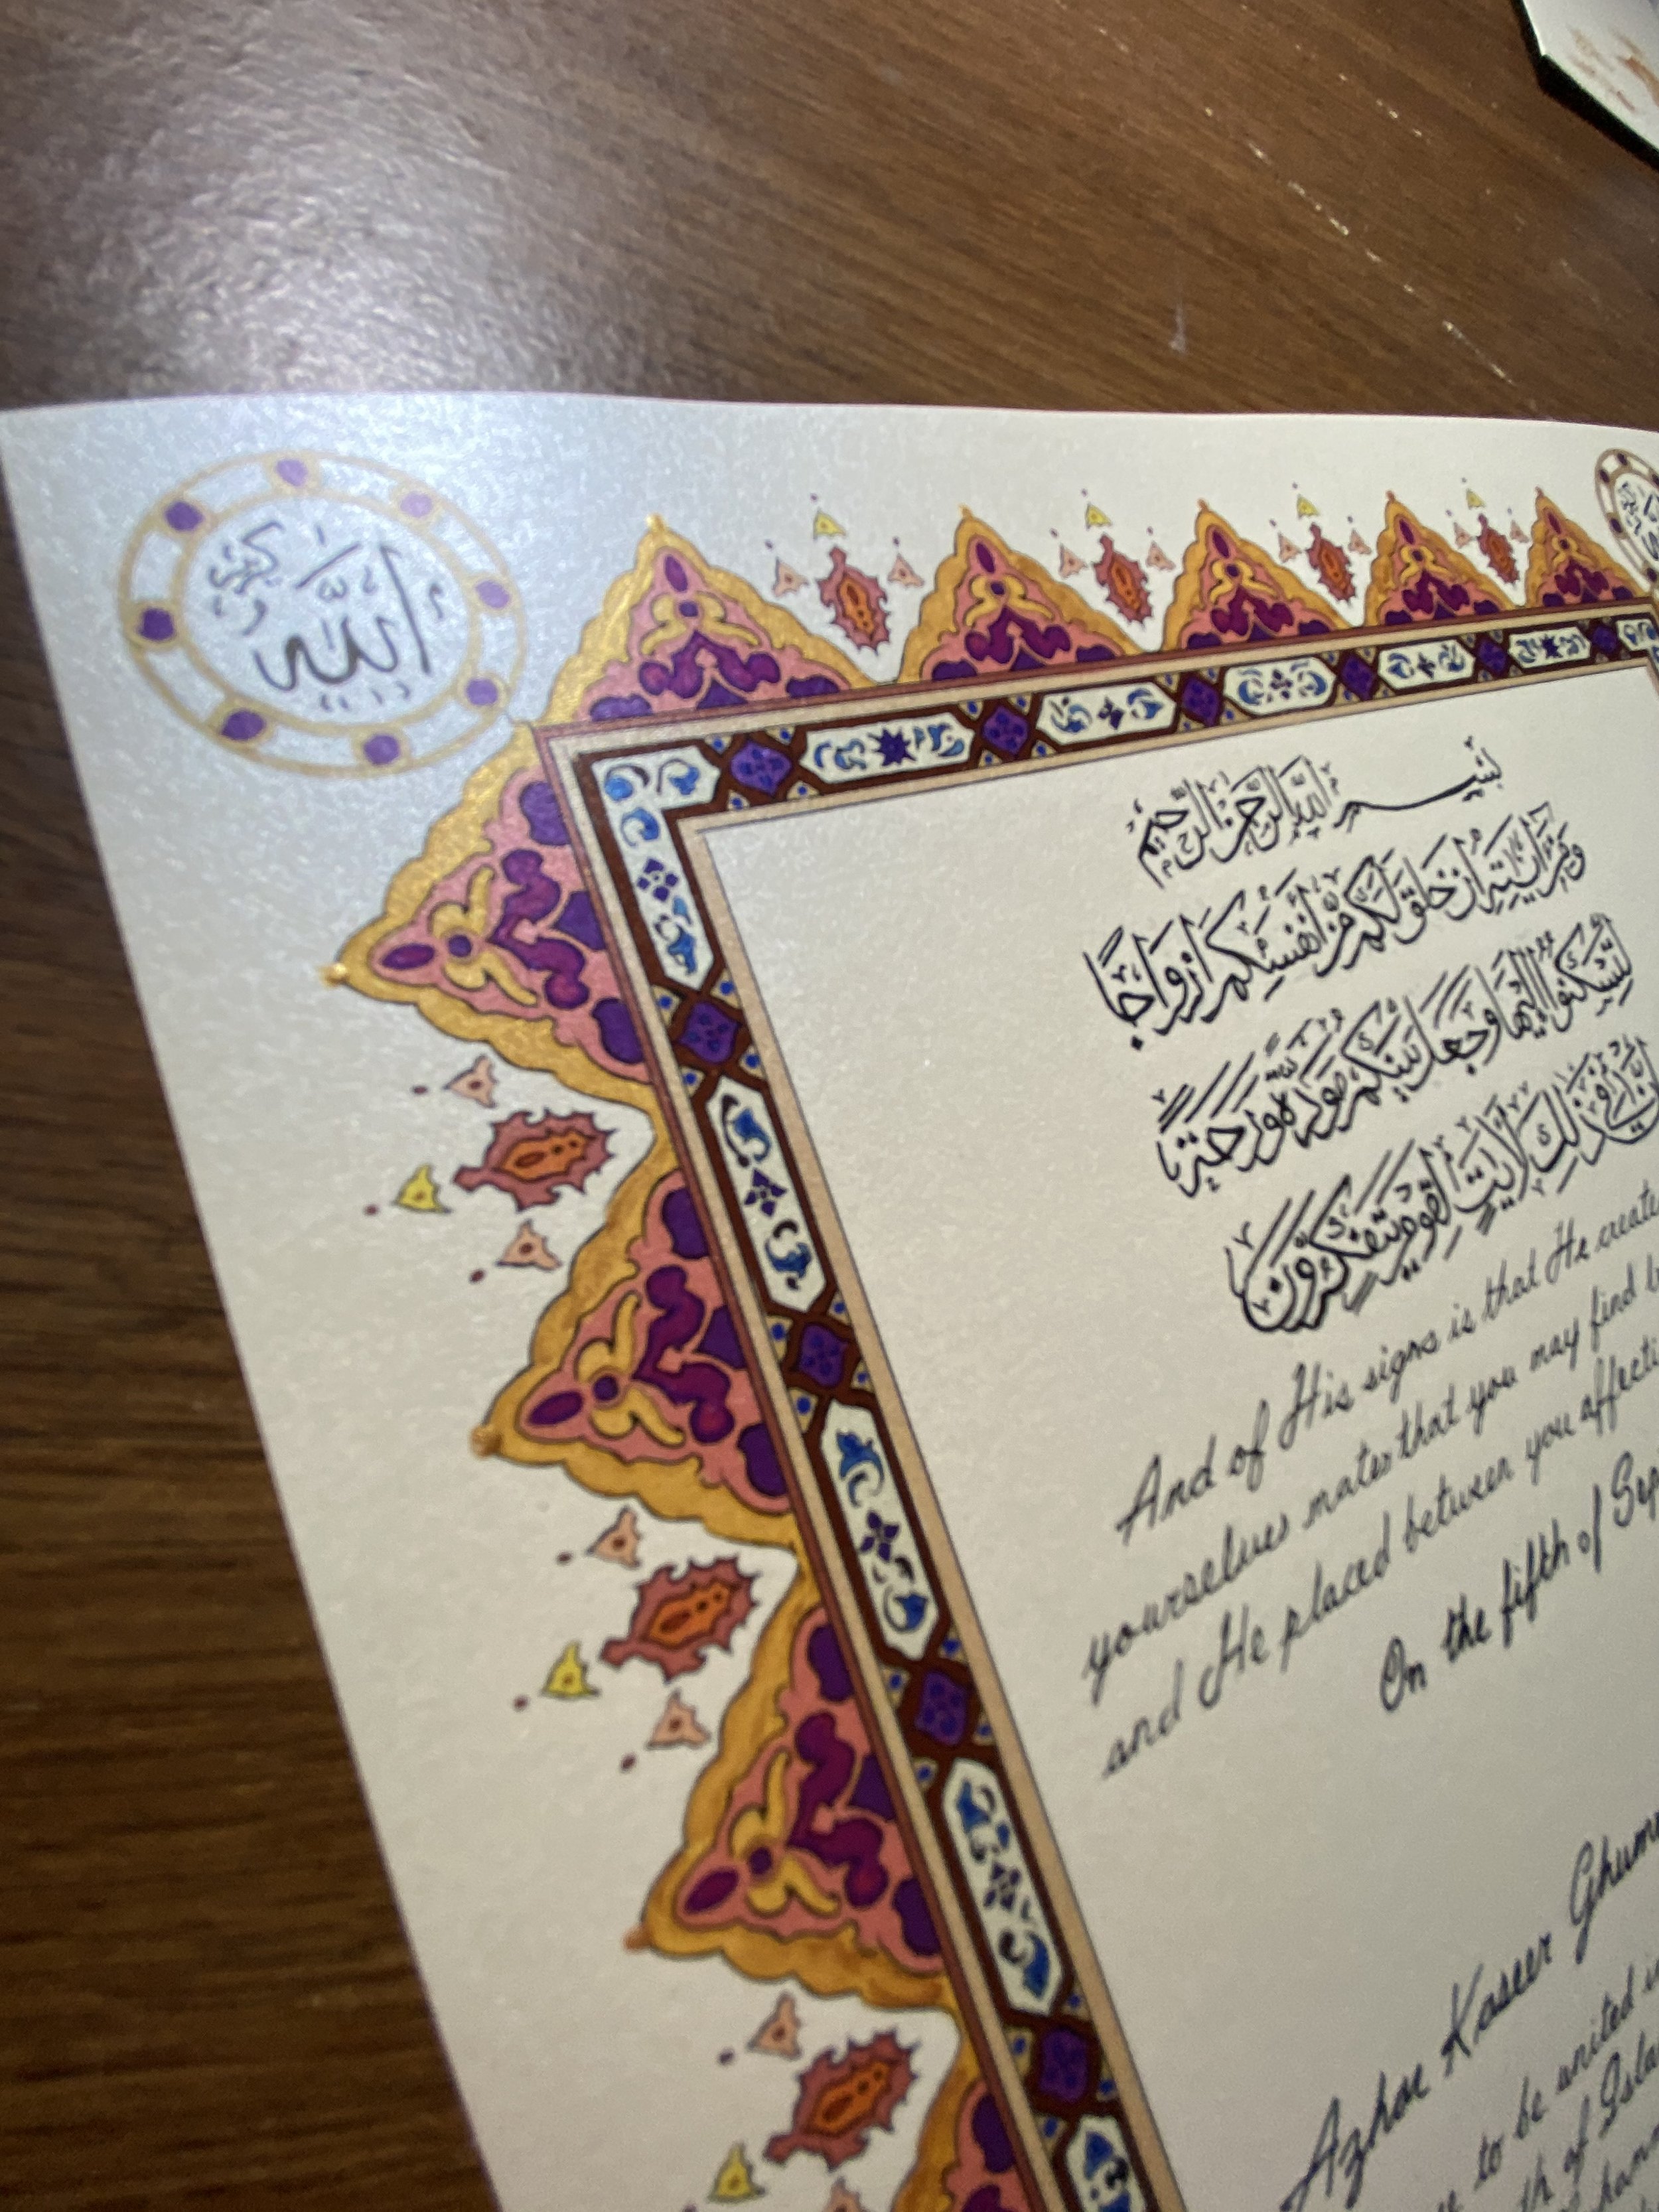 الله
بسم الله الرحمن الرحيم
ومن آياته أن خلق لكم من أنفسكم أزواجا
لتسكنوا إليها وجعل بينكم مودة ورحمة
إن في ذلك لآيات لقوم يتفكرون
And of His signs is that He create
yourselves mates that you may find
and He placed between you affecti
On the fifth of Sep
Azhar Kaseer Ghum
to be united
of Isla